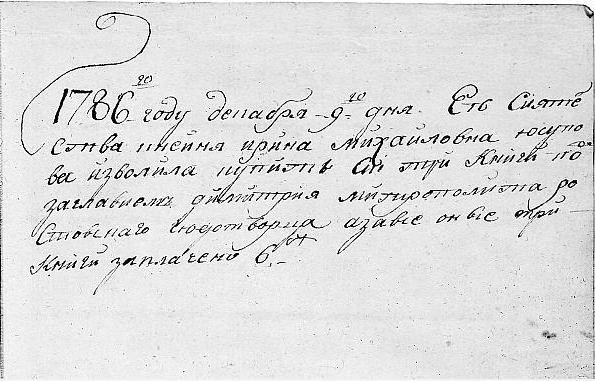 1786 го году декабря 9 го дня. Ея Сияте
ства кнегиня ирина михайловна юсупо
ва изволила купить сіи три книги под
заглавием димитрия митрополита ро
стовскаго чюдотворца а за все оные три
книги заплачено 6 —